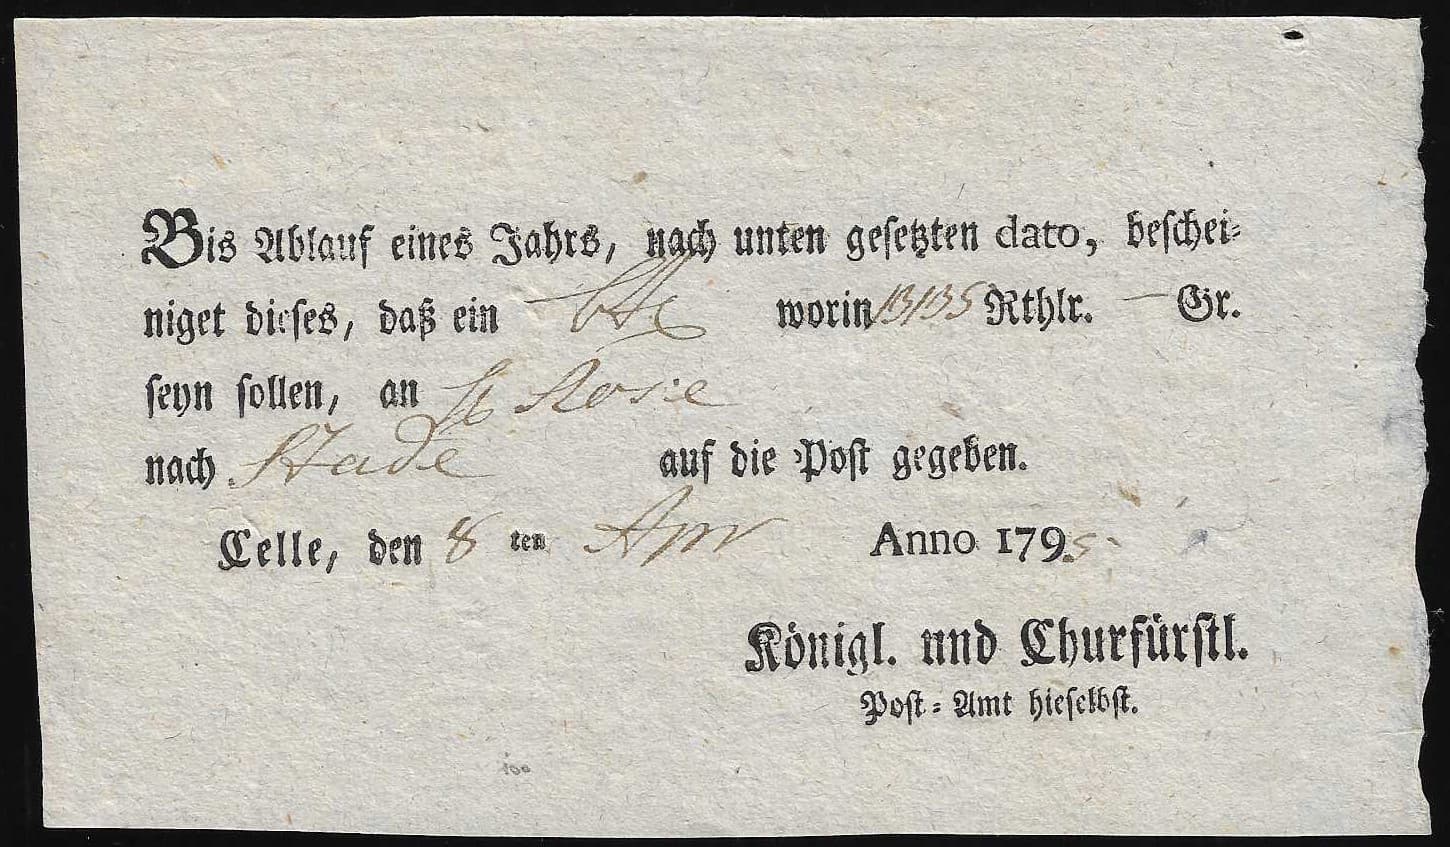 Bis Ablauf eines Jahrs, nach unten gesetzten dato, beschei-
niget dieses, daß ein worin Rthlr. — Gr.
seyn sollen, an
nach Stade auf die Post gegeben.
Celle, den 8 ten Apr Anno 1795.
Königl. und Churfürstl.
Post-Amt hieselbst.
100